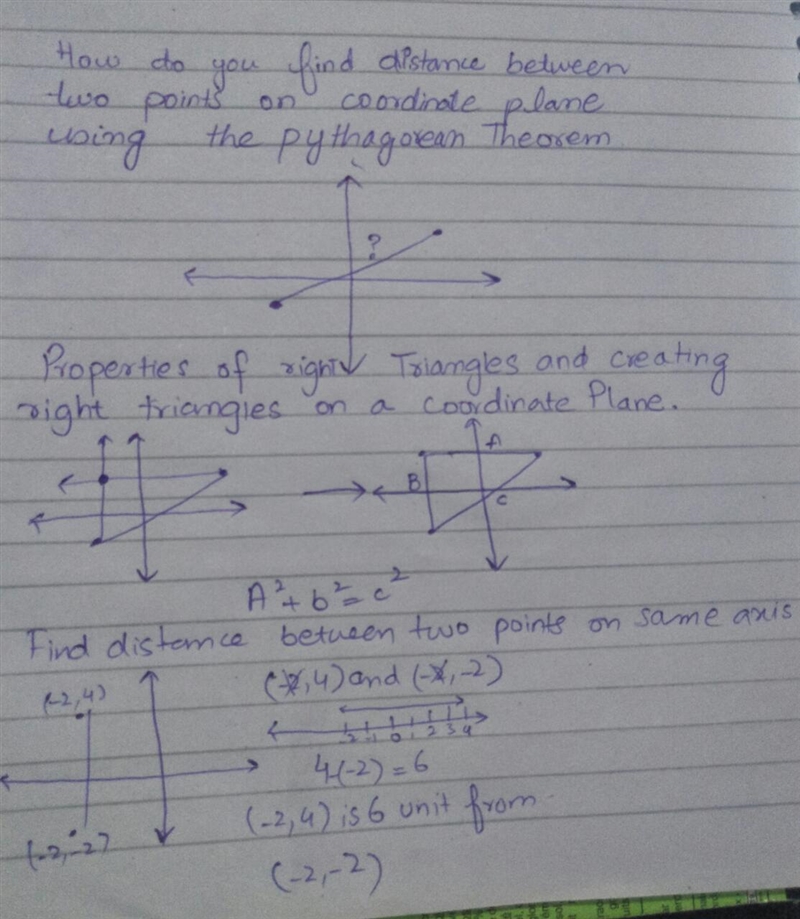 How do you find distance between
two points on coordinate plane
using the pythagorean Theorem
?
Properties of right Triangles and creating
right triangles on a coordinate Plane.
A
B
C
A²+b²=c²
Find distance between two points on same axis
(-2,4) and (-2,-2)
(-2,4)
-2 -1 0 1 2 3 4
4-(-2)=6
(-2,4) is 6 unit from
(-2,-2)
(-2,-2)